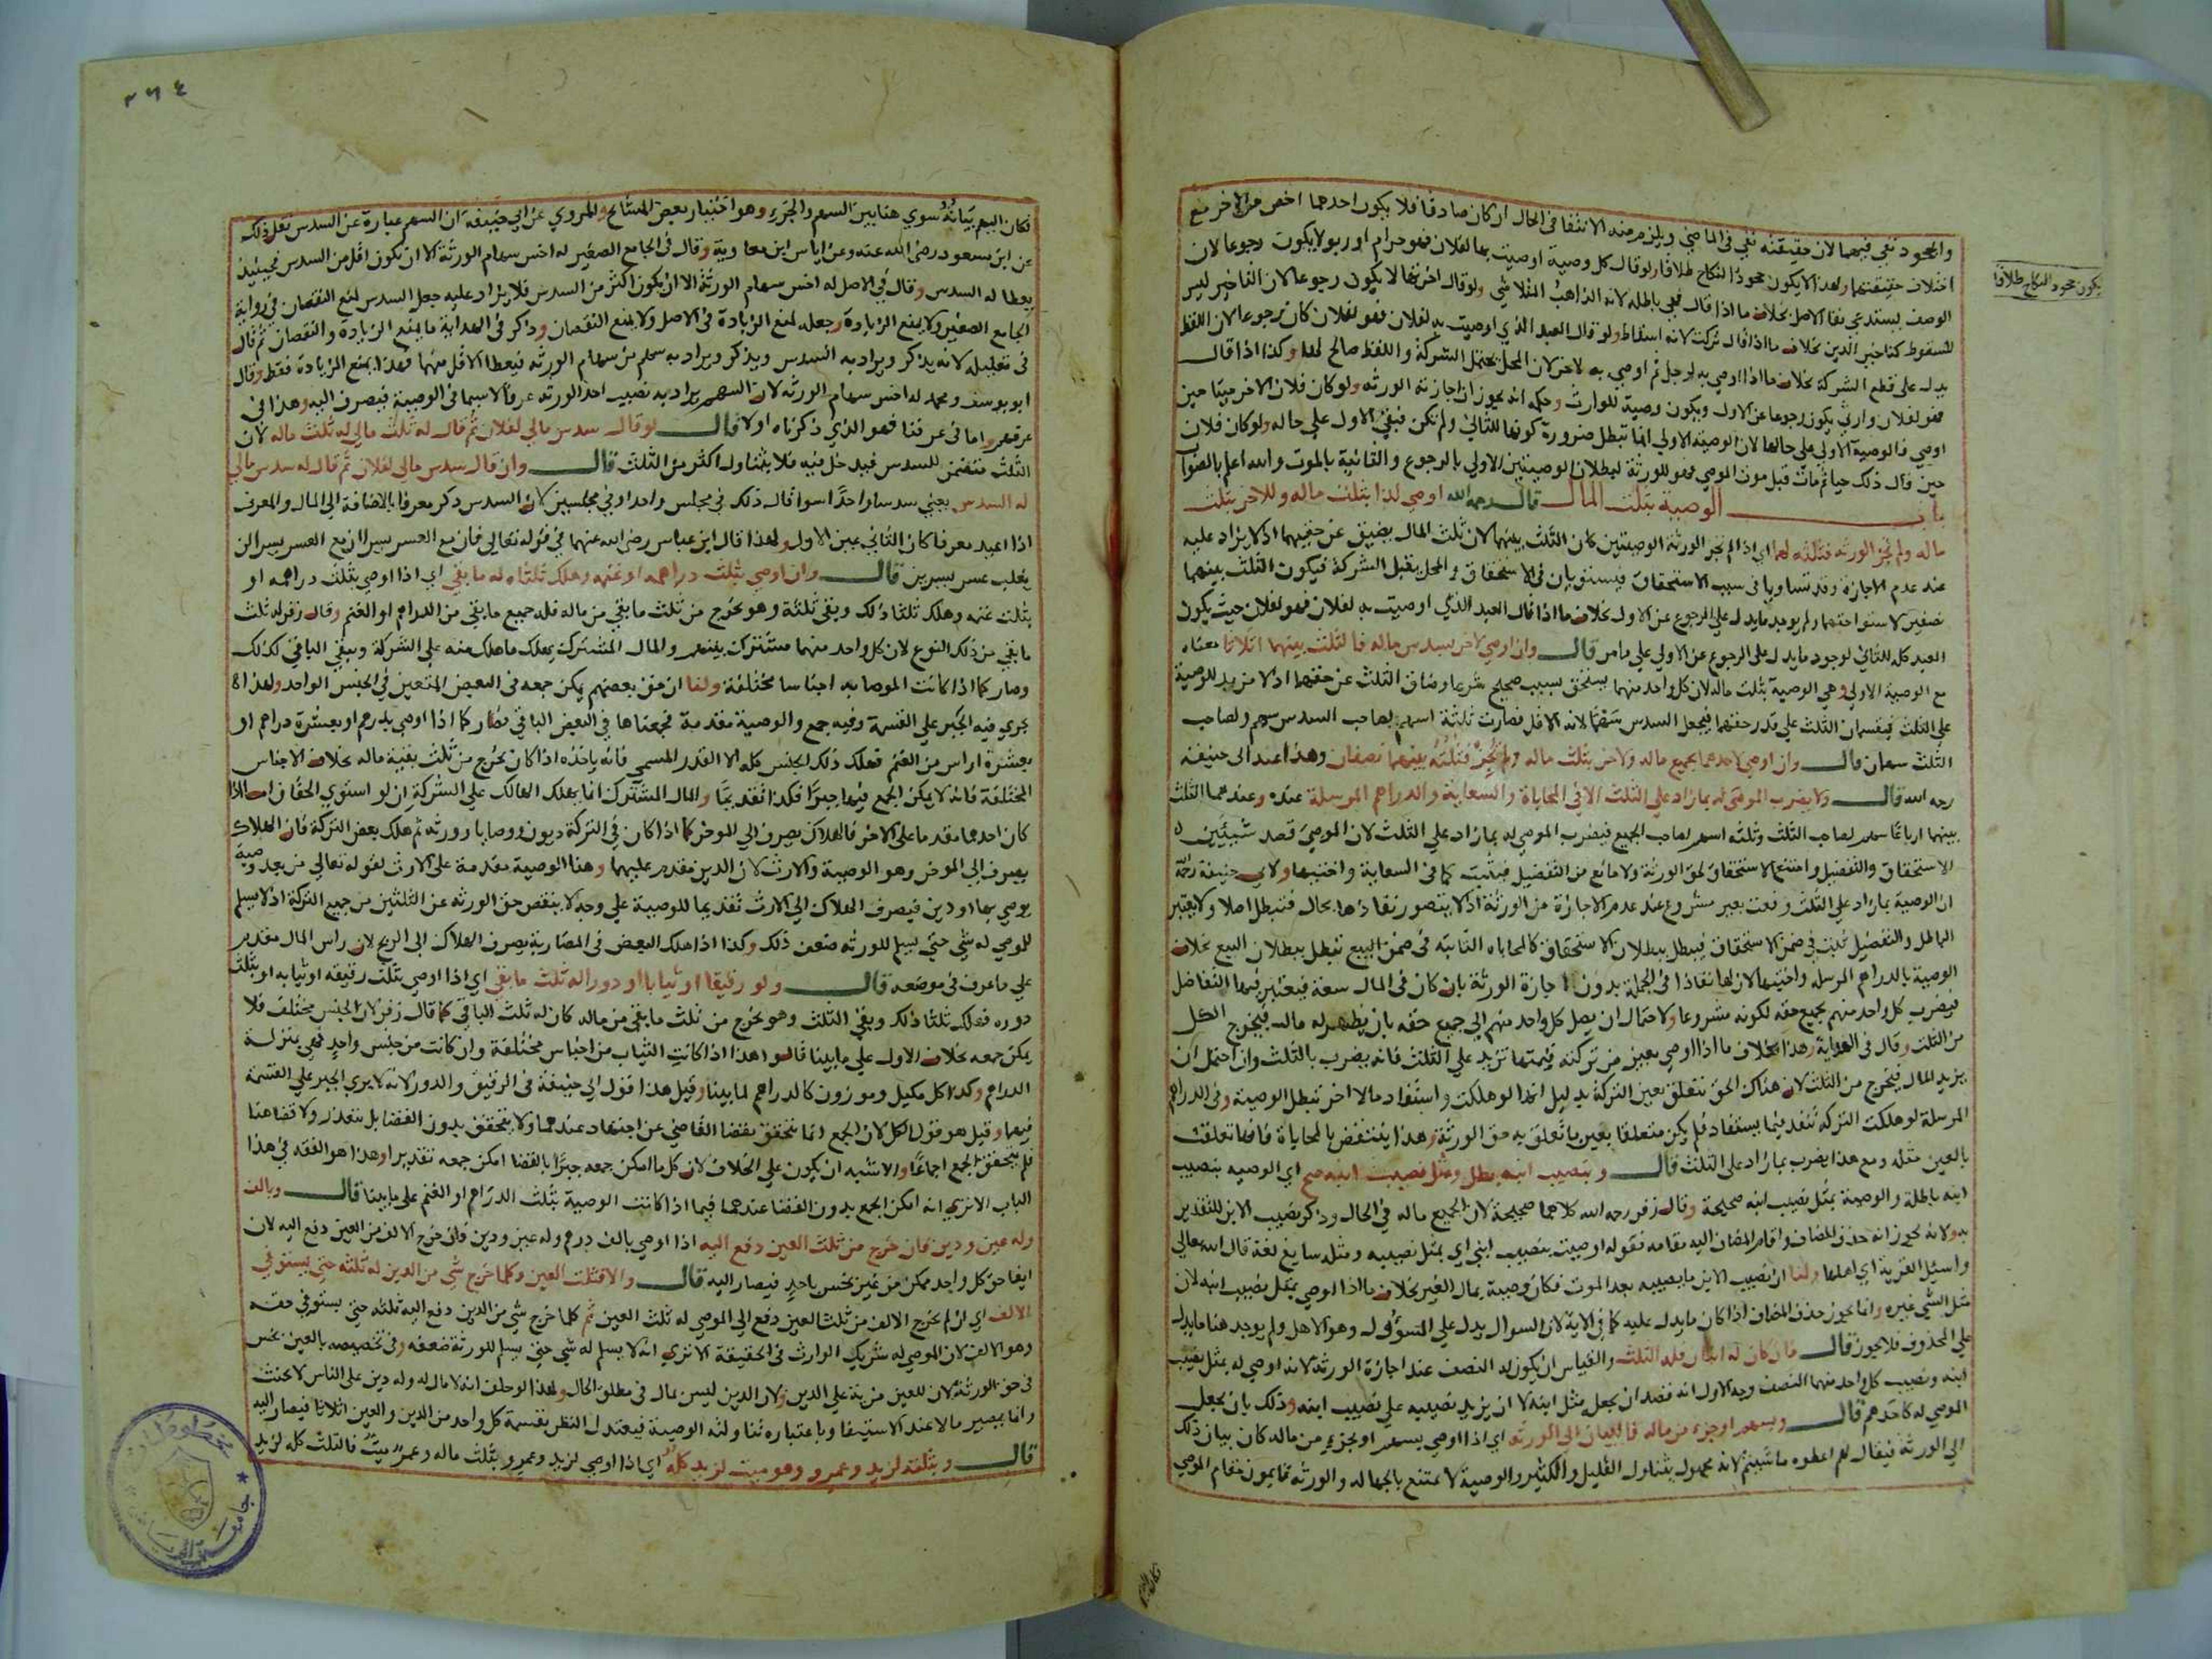 والجحود نفي فيهما لان حقيقته نفي في الماضي ويلزم منه الانتفا في الحال ان كان صادقا فلا يكون احدهما اخص من الاخر مع
اختلاف حقيقتهما ولهذا لا يكون جحود النكاح طلاقا ولو قال كل وصية اوصيت بها لفلان فهو حرام او ربو لا يكون رجوعا لان
يكون جحود النكاح طلاقا
الوصف يستدعي بقا الاصل بخلاف ما اذا قال فهي باطلة لانه الذاهب المتلاشي ولو قال اخرتها لا يكون رجوعا لان التاخير ليس
للسقوط كتاخير الدين بخلاف ما اذا قال تركت لانه اسقاط ولو قال العبد الذي اوصيت به لفلان فهو لفلان كان رجوعا لان اللفظ
يدل على قطع الشركة بخلاف ما اذا اوصي به لرجل ثم اوصي به لاخر لان المحل يحتمل الشركة واللفظ صالح لها وكذا اذا قال
فهو لفلان وارثي يكون رجوعا عن الاول ويكون وصية للوارث وحكمه انه يجوز ان اجازته الورثه ولو كان فلان الاخر ميتا حين
اوصي فالوصية الاولي على حالها لان الوصية الاولي انما تبطل ضرورة كونها للثاني ولم تكن فبقي الاول على حاله ولو كان فلان
حين قال ذلك حيا ثم مات قبل موت الموصي فهو للورثة لبطلان الوصيتين الاولي بالرجوع والثانية بالموت والله اعلم بالصواب
باب الوصية بثلث المال قال رحمه الله اوصي لذا بثلث ماله وللاخر بثلث
ماله ولم تجز الورثه فثلثه لهما اي اذا لم تجز الورثة الوصيتين كان الثلث بينهما لان ثلث المال يضيق عن حقيهما اذ لا يزاد عليه
عند عدم الاجازة وقد تساويا في سبب الاستحقاق فيستويان في الاستحقاق والمحل يقبل الشركة فيكون الثلث بينهما
نصفين لاستوا حقهما ولم يوجد ما يدل على الرجوع عن الاول بخلاف ما اذا قال العبد الذي اوصيت به لفلان فهو لفلان حيث يكون
العبد كله للثاني لوجود ما يدل على الرجوع عن الاولي على ما مر قال وان اوصي لاخر بسدس ماله فالثلث بينهما اثلاثا معناه
مع الوصية الاولي وهي الوصية بثلث ماله لان كل واحد منهما يستحق بسبب صحيح شرعا وضاق الثلث عن حقهما اذ لا مزيد للوصية
على الثلث فيقسمان الثلث على قدر حقهما فيجعل السدس سهما لانه الاقل فصارت ثلثة اسهم لصاحب السدس سهم ولصاحب
الثلث سهمان قال وان اوصي لاحدهما بجميع ماله ولاخر بثلث ماله ولم تجز فثلثه بينهما نصفان وهذا عند ابي حنيفة
رحمه الله قال ولا يضرب الموصي له بما زاد على الثلث الا في المحاباة والسعاية والدراهم المرسلة عنده وعندهما الثلث
بينهما ارباعا سهم لصاحب الثلث وثلثه اسهم لصاحب الجميع فيضرب الموصي له بما زاد على الثلث لان الموصي قصد شيئين
الاستحقاق والتفضيل وامتنع الاستحقاق لحق الورثة ولا مانع من التفضيل فيثبت كما في السعاية واختيها ولابي حنيفة رحمه الله
ان الوصية بما زاد على الثلث وقعت بغير مشروع عند عدم الاجازة من الورثة اذ لا يتصور نفاذها بحال فتبطل اصلا ولا يعتبر
الباطل والتفضيل ثبت في ضمن الاستحقاق فيبطل ببطلان الاستحقاق كالمحاباه الثابته في ضمن البيع تبطل ببطلان البيع بخلاف
الوصية بالدراهم المرسله واختيها لان لها نفاذا في الجملة بدون اجازة الورثة بان كان في المال سعة فيعتبر فيها التفاضل
فيضرب كل واحد منهم بجميع حقه لكونه مشروعا ولاحتمال ان يصل كل واحد منهم الي جميع حقه بان يظهر له مال فيخرج الكل
من الثلث وقال في الهداية وهذا بخلاف ما اذا اوصي بعين من تركته قيمتها تزيد على الثلث فانه يضرب بالثلث وان احتمل ان
يزيد المال فيخرج من الثلث لان هناك الحق تتعلق بعين التركة بدليل انها لو هلكت واستفاد مالا اخر تبطل الوصية وفي الدراهم
المرسلة لو هلكت التركه تنفذ فيما يستفاد فلم يكن متعلقا بعين ما تعلق به حق الورثة وهذا ينتقض بالمحاباة فانها تعلقت
بالعين مثله ومع هذا يضرب بما زاد على الثلث قال وبنصيب ابنه بطل وبمثل نصيب ابنه صح اي الوصيه بنصيب
ابنه باطلة والوصية بمثل نصيب ابنه صحيحة وقال زفر رحمه الله كلاهما صحيحة لان الجميع ماله في الحال وذكر نصيب الابن للتقدير
به ولانه يجوز انه حذف المضاف واقام المضاف اليه مقامه فقوله اوصيت بنصيب ابني اي بمثل نصيبه ومثله سايغ لغة قال الله تعالى
واسئل القرية اي اهلها ولنا ان نصيب الابن ما يصيبه بعد الموت فكان وصية بمال الغير بخلاف ما اذا اوصي بمثل نصيب ابنه لان
مثل الشي غيره وانما يجوز حذف المضاف اذا كان ما يدل عليه كما في الاية لان السوال يدل على المسؤول وهو الاهل ولم يوجد هنا ما يدل
على المحذوف فلا يجوز قال فان كان له ابنان فله الثلث والقياس ان يكون له النصف عند اجازة الورثة لانه اوصي له بمثل نصيب
ابنه ونصيب كل واحد منهما النصف وجه الاول انه قصد ان يجعله مثل ابنه لا ان يزيد نصيبه على نصيب ابنه وذلك بان يجعل
الموصي له كاحدهم قال وبسهم او جزء من ماله فالبيان الي الورثه اي اذا اوصي بسهم او بجزء من ماله كان بيان ذلك
الي الورثة فيقال لهم اعطوه ما شيتم لانه مجهول يتناول القليل والكثير والوصية لا تمتنع بالجهاله والورثه قايمون مقام الموصي
فكان
٣٦٤
فكان اليهم بيانه سوي هنا بين السهم والجزء وهو اختيار بعض المشايخ والمروي عن ابي حنيفة ان السهم عبارة عن السدس نقل ذلك
عن ابن مسعود رضي الله عنه وعن اياس ابن معاوية وقال في الجامع الصغير له اخس سهام الورثة الا ان يكون اقل من السدس فحينئذ
يعطا له السدس وقال في الاصل له اخس سهام الورثة الا ان يكون اكثر من السدس فلا يزاد عليه جعل السدس لمنع النقصان في رواية
الجامع الصغير ولا يمنع الزيادة وجعله لمنع الزيادة في الاصل ولا يمنع النقصان وذكر في الهداية ما يمنع الزيادة والنقصان ثم قال
في تعليله لانه يذكر ويراد به السدس ويذكر ويراد به سهم من سهام الورثه فيعطا الاقل منهما فهذا يمنع الزيادة فقط وقال
ابو يوسف ومحمد له اخس سهام الورثه لان السهم يراد به نصيب احد الورثه عرفا لاسيما في الوصية فيصرف اليه وهذا في
عرفهم واما في عرفنا فهو الذي ذكرناه اولا قال لو قال سدس مالي لفلان ثم قال له ثلث مالي له ثلث ماله لان
الثلث متضمن للسدس فيدخل فيه فلا يتناول اكثر من الثلث قال وان قال سدس مالي لفلان ثم قال له سدس مالي
له السدس يعني سدسا واحدا سوا قال ذلك في مجلس واحد او في مجلسين لان السدس ذكر معرفا بالاضافة الي المال والمعرف
اذا اعيد معرفا كان الثاني عين الاول ولهذا قال ابن عباس رضي الله عنهما في قوله تعالي فان مع العسر يسرا ان مع العسر يسرا لن
يغلب عسر يسرين قال وان اوصي بثلث دراهمه او غنمه وهلك ثلثاه له ما بقي اي اذا اوصي بثلث دراهمه او
بثلث غنمه وهلك ثلثا ذلك وبقي ثلثه وهو يخرج من ثلث ما بقي من ماله فله جميع ما بقي من الدراهم او الغنم وقال زفر له ثلث
ما بقي من ذلك النوع لان كل واحد منهما مشترك بينهم والمال المشترك يهلك ما هلك منه على الشركة ويبقي الباقي كذلك
وصار كما اذا كانت الموصا به اجناسا مختلفة ولنا ان حق بعضهم يمكن جمعه في البعض المتعين في الجنس الواحد ولهذا
يجري فيه الجبر على القسمة وفيه جمع والوصية مقدمة فجمعناها في البعض الباقي فصار كما اذا اوصي بدرهم او بعشرة دراهم او
بعشرة اراس من الغنم فهلك ذلك الجنس كله الا القدر المسمي فانه ياخذه اذا كان يخرج من ثلث بقية ماله بخلاف الاجناس
المختلفة فانه لا يمكن الجمع فيها جبرا فكذا تقديما والمال المشترك انما يهلك الهالك على الشركة ان لو استوي الحقان اما اذا
كان احدهما مقدما على الاخر فالهلاك يصرف الي الموخر كما اذا كان في التركة ديون ووصايا وورثه ثم هلك بعض التركة فان الهلاك
يصرف الي الموخر وهو الوصية والارث لان الدين مقدم عليهما وهنا الوصية مقدمة على الارث لقوله تعالي من بعد وصية
يوصي بها او دين فيصرف الهلاك الي الارث تقديما للوصية على وجه لا ينقص حق الورثه عن الثلثين من جميع التركة اذ لا يسلم
للموصي له شي حتي يسلم للورثه ضعف ذلك وكذا اذا هلك البعض في المضاربة يصرف الهلاك الي الربح لان راس المال مقدم
على ما عرف في موضعه قال ولو رقيقا او ثيابا او دورا له ثلث ما بقي اي اذا اوصي بثلث رقيقه او ثيابه او بثلث
دوره فهلك ثلثا ذلك وبقي الثلث وهو يخرج من ثلث ما بقي من ماله كان له ثلث الباقي كما قال زفر لان الجنس مختلف فلا
يمكن جمعه بخلاف الاول على ما بينا قالوا هذا اذا كانت الثياب من اجناس مختلفة وان كانت من جنس واحد فهي بمنزلة
الدراهم وكذا كل مكيل وموزون كالدراهم لما بينا وقيل هذا قول ابي حنيفة في الرقيق والدور لانه لا يري الجبر على القسمة
فيها وقيل هو قول الكل لان الجمع انما يتحقق بقضا القاضي عن اجتهاد عندهما ولا يتحقق بدون القضا بل يتعذر ولا قضا هنا
فلم يتحقق الجمع اجماعا والاشبه ان يكون على الخلاف لان كل ما امكن جمعه جبرا بالقضا امكن جمعه تقديرا وهذا هو الفقه في هذا
الباب الا تري انه امكن الجمع بدون القضا عندهما فيما اذا كانت الوصية بثلث الدراهم او الغنم على ما بينا قال وبالف
وله عين ودين فان خرج من ثلث العين دفع اليه اذا اوصي بالف درهم وله عين ودين فان خرج الالف من العين دفع اليه لان
ايفا حق كل واحد ممكن من غير بخس باحد فيصار اليه قال والا فثلث العين وكلما خرج شي من الدين له ثلثه حتي يستوفي
الالف اي ان لم تخرج الالف من ثلث العين دفع الي الموصي له ثلث العين ثم كلما خرج شي من الدين دفع اليه ثلثه حتي يستوفي حقه
وهو الالف لان الموصي له شريك الوارث في الحقيقة الا تري انه لا يسلم له شي حتي يسلم للورثة ضعفه وفي تخصيصه بالعين بخس
في حق الورثة لان للعين مزية على الدين ولان الدين ليس بمال في مطلق الحال ولهذا لو حلف انه لا مال له وله دين على الناس لا يحنث
وانما يصير مالا عند الاستيفا وباعتباره تناولته الوصية فيعتدل النظر بقسمة كل واحد من الدين والعين اثلاثا فيصار اليه
قال وبثلثه لزيد وعمرو وهو ميت لزيد كله اي اذا اوصي لزيد وعمرو بثلث ماله وعمرو ميت فالثلث كله لزيد